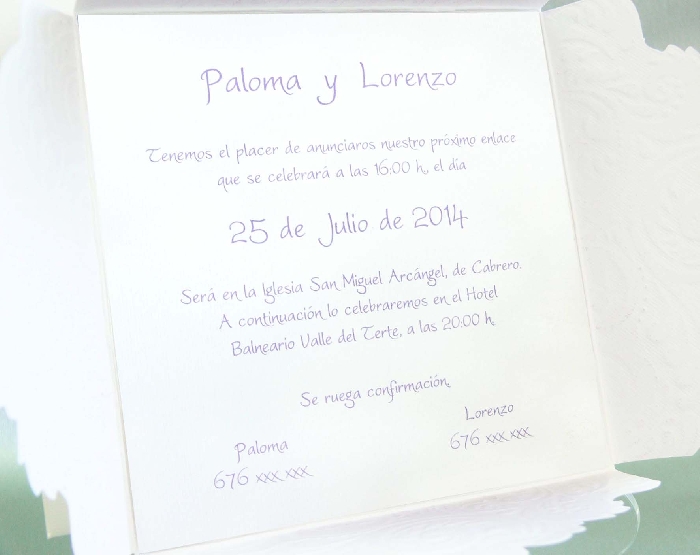 Paloma y Lorenzo
Tenemos el placer de anunciaros nuestro próximo enlace
que se celebrará a las 16:00 h, el día
25 de Julio de 2014
Será en la Iglesia San Miguel Arcángel, de Cabrero.
A continuación lo celebraremos en el Hotel
Balneario Valle del Terte, a las 20:00 h.
Se ruega confirmación.
Paloma Lorenzo
676 xxx xxx 676 xxx xxx